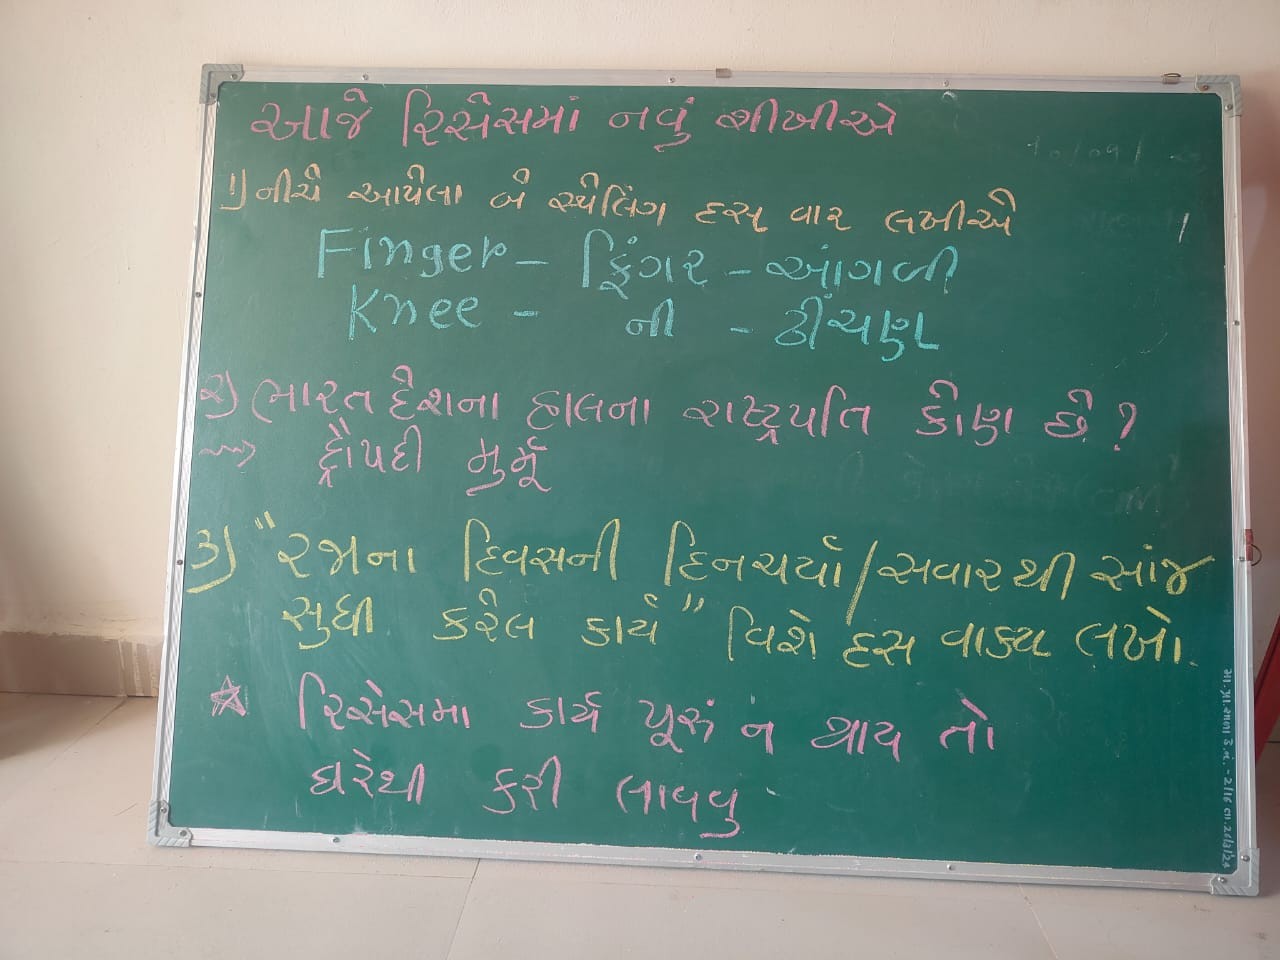 આજે રિસેસમાં નવું શીખીએ
૧) નીચે આપેલા બે સ્પેલિંગ દસ વાર લખીએ
Finger - ફિંગર - આંગળી
Knee - ની - ઢીંચણ
૨) ભારત દેશના હાલના રાષ્ટ્રપતિ કોણ છે ?
દ્રૌપદી મુર્મૂ
૩) "રજાના દિવસની દિનચર્યા / સવારથી સાંજ
સુધી કરેલ કાર્ય" વિશે દસ વાક્ય લખો.
☆ રિસેસમા કાર્ય પૂરું ન થાય તો
ઘરેથી કરી લાવવુ